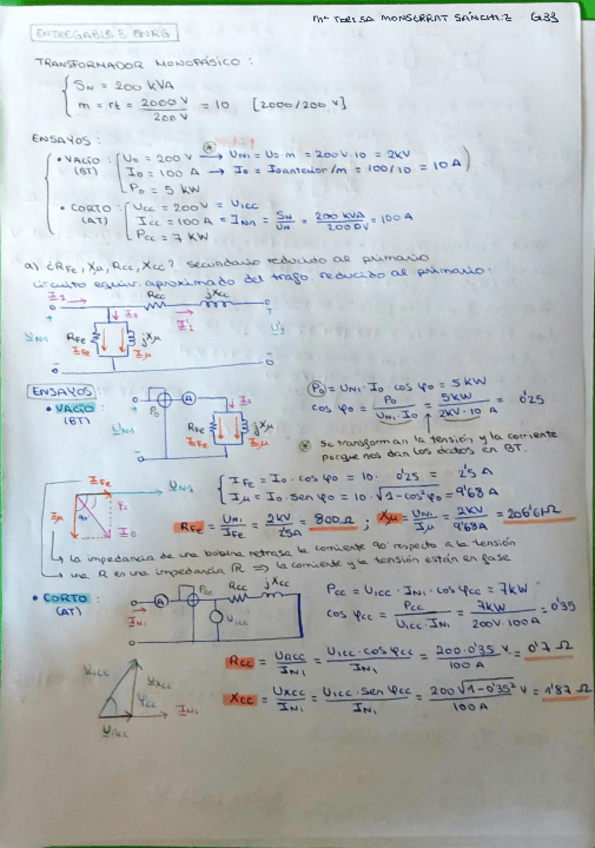 Mª TERESA MONSERRAT SÁNCHEZ G33
ENTREGABLE 3 ENRG
TRANSFORMADOR MONOFÁSICO:
SN = 200 KVA
m = rt = 2000 V / 200 V = 10 [2000/200 V]
ENSAYOS:
• VACÍO (BT) U0 = 200 V → UN1 = U0·m = 200V·10 = 2KV
I0 = 100 A → I0 = I0anterior/m = 100/10 = 10 A
P0 = 5 KW
• CORTO (AT) : Ucc = 200 V = U1cc
Icc = 100 A = IN1 = SN/UN = 200 KVA / 2000V = 100 A
Pcc = 7 KW
a) ¿RFe, Xμ, Rcc, Xcc? secundario reducido al primario
Circuito equiv. aproximado del trafo reducido al primario:
Rcc jXcc
I0
UN1 RFe jXμ I'2 U'2
IFe Iμ
ENSAYOS:
• VACÍO (BT)
P0 A I0
UN1 RFe jXμ
IFe Iμ
P0 = UN1·I0·cos φ0 = 5 KW
cos φ0 = P0 / UN1·I0 = 5KW / 2KV·10 A = 0'25
* Se transforman la tensión y la corriente
porque nos dan los datos en BT.
IFe UN1
Iμ 90° φ0 I0
IFe = I0·cos φ0 = 10·0'25 = 2'5 A
Iμ = I0·sen φ0 = 10·√1-cos²φ0 = 9'68 A
RFe = UN1/IFe = 2KV/2'5A = 800 Ω ; Xμ = UN1/Iμ = 2KV/9'68A = 206'61 Ω
↳ la impedancia de una bobina retrasa la corriente 90° respecto a la tensión
↳ una R es una impedancia R ⇒ la corriente y la tensión están en fase
• CORTO (AT)
A Pcc Rcc jXcc
IN1 U1cc
Pcc = U1cc·IN1·cos φcc = 7KW
cos φcc = Pcc / U1cc·IN1 = 7KW / 200V·100A = 0'35
Rcc = URcc/IN1 = U1cc·cos φcc / IN1 = 200·0'35 V / 100 A = 0'7 Ω
U1cc UXcc φcc IN1 URcc
Xcc = UXcc/IN1 = U1cc·sen φcc / IN1 = 200√1-0'35² V / 100 A = 1'87 Ω